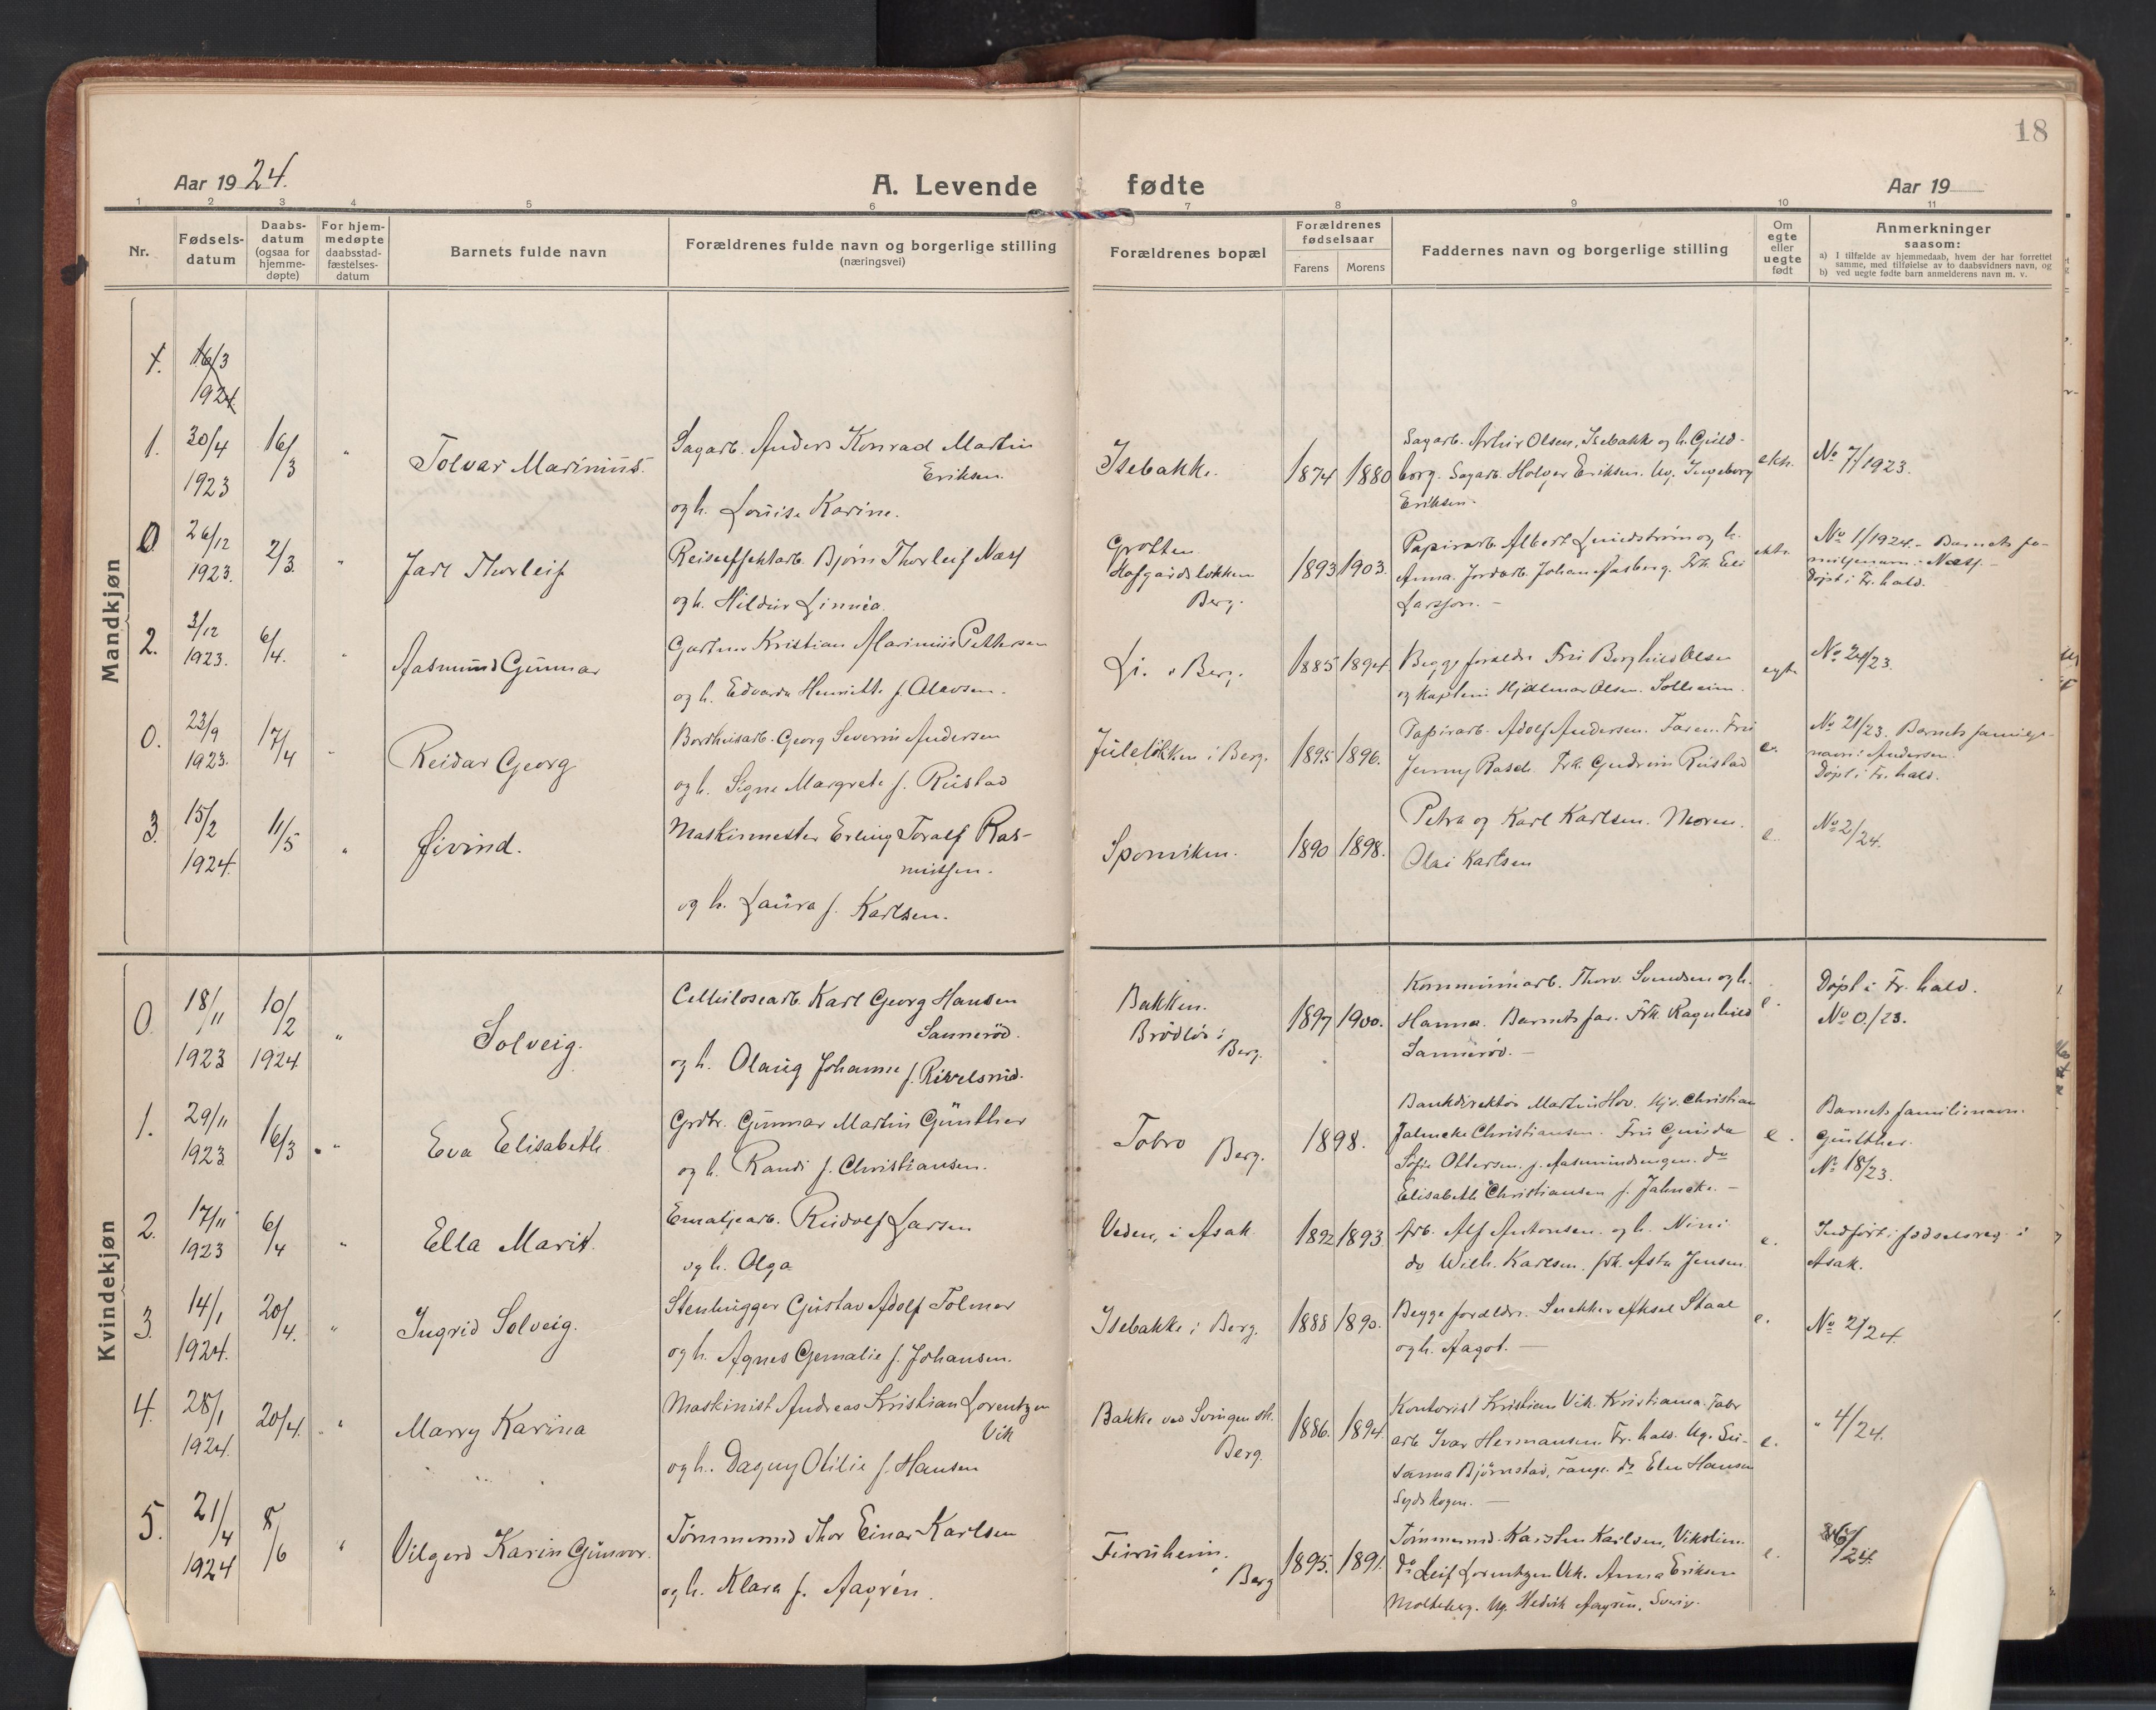 18
Aar 1924.
A. Levende fødte
Aar 19
1 2 3 4 5 6 7 8 9 10 11
Nr.
Fødsels-
datum
Daabs-
datum
(ogsaa for
hjemme-
døpte)
For hjem-
medøpte
daabsstad-
fæstelses-
datum
Barnets fulde navn
Forældrenes fulde navn og borgerlige stilling
(næringsvei)
Forældrenes bopæl
Forældrenes
fødselsaar
Farens Morens
Faddernes navn og borgerlige stilling
Om
egte
eller
uegte
født
Anmerkninger
saasom:
a) I tilfælde av hjemmedaab, hvem der har forrettet
samme, med tilføielse av to daabsvidners navn, og
b) ved uegte fødte barn anmelderens navn m. v.
Mandkjøn
1. 16/3
1924
1. 30/4 1923 16/3 " Tolvar Marinius.
Sagarb. Anders Konrad Martin
Eriksen
og h. Louise Karine.
Isebakke. 1874 1880
Sagarb. Arthur Olsen, Isebakke og h. Guld-
borg. Sagarb. Holger Eriksen. Ug. Ingeborg
Eriksen.
ekte. No 7/1923.
0 26/12 1923. 2/3 " Jarl Thorleif
Reiseeffektarb. Bjørn Thorleif Næss
og h. Hildur Linnéa.
Grotten
Hofgårdsløkken
Berg.
1893 1903.
Papirarb. Albert Lundstrøm og h.
Anna. Jordarb. Johan Aasberg. Frk. Eli
Larsson. –
ekte. No 1/1924. – Barnets fa-
milienavn: Næss. –
Døpt i Fr. hald.
2. 3/12 1923. 6/4. " Aasmund Gunnar
Gartner Kristian Marinius Pettersen
og h. Edvarda Henriette f. Olavsen.
Li. i Berg. 1885 1894.
Begge forældre Fru Borghild Olsen
og Kaptein Hjalmar Olsen. Solheim.
egte No 24/23.
0. 23/9 1923. 17/4 " Reidar Georg
Bordhusarb. Georg Severin Andersen
og h. Signe Margrete f. Rustad
Juleløkken i Berg. 1895 1896.
Papirarb. Adolf Andersen. Faren. Fru
Jenny Rasch. Frk. Gudrun Rustad
e. No 21/23. Barnets familie-
navn: Andersen.
Døpt i Fr. hald.
3. 15/2 1924. 11/5 " Øivind.
Maskinmester Erling Toralf Ras-
mussen.
og h. Laura f. Karlsen.
Sponviken. 1890 1898.
Petra og Karl Karlsen. Moren.
Olai Karlsen
e. No 2/24.
Kvindekjøn
0. 18/11 1923 10/2 1924 " Solveig.
Cellulosearb. Karl Georg Hansen
Sannerød.
og h. Olaug Johanne f.
Bakken.
Brødløs i
Berg.
1897 1900.
Kommunearb. Thorv. Svendsen og h.
Hanna. Barnets far. Frk. Ragnhild
Sannerød. –
e. Døpt i Fr. hald.
No 0./23.
1. 29/11 1923 16/3 " Eva Elisabeth
Grdbr. Gunnar Martin Günther
og h. Randi f. Christiansen.
Tobro Berg. 1898.
Bankdirektør Martin Hov. Hjv. Christian
Jahncke Christiansen. Fru Gunda
Sofie Ottersen f. Aasmundsengen. do
Elisabeth Christiansen f. Jahncke. –
e. Barnets familienavn.
Günther.
No 18/23.
2. 17/11 1923 6/4 " Ella Marit.
Emaljearb. Rudolf Larsen
og h. Olga
Veden, i Asak. 1892 1893
Arb. Alf Antonsen. og h. Nini
do Wilh. Karlsen. frk. Asta Jensen.
e. Indført i fødselsreg. i
Asak.
3. 14/1 1924. 20/4. " Ingrid Solveig.
Stenhugger Gustav Adolf Tolmer
og h. Agnes Gemalie f. Johansen.
Isebakke i Berg. 1888 1890.
Begge forældre. Snekker Aksel Staal
og h. Aagot. –
e. No 2/24
4. 28/1 1924. 20/4. " Marry Karina
Maskinist Andreas Kristian Lorentzen
Vik
og h. Dagny Otilie f. Hansen
Bakke ved Svingen sk.
Berg.
1886. 1894.
Kontorist Kristian Vik. Kristiania. Fabr
arb. Ivar Hermansen. Fr. hald. Ug. Su-
sanna Bjørnstad, Tange. do Elen Hansen
Sydskogen. –
e. " 4/24.
5. 21/4 1924 8/6 " Vilgerd Karin Gunvor.
Tømmermd Thor Einar Karlsen
og h. Klara f. Aagrén.
Furuheim.
i Berg
1895. 1891.
Tømmermd. Karsten Karlsen, Vikslien.
do Leif Lorentzen Vik. Anna Eriksen
Molteberg. Ug. Hedvik Aagrén.
e. 6/24.